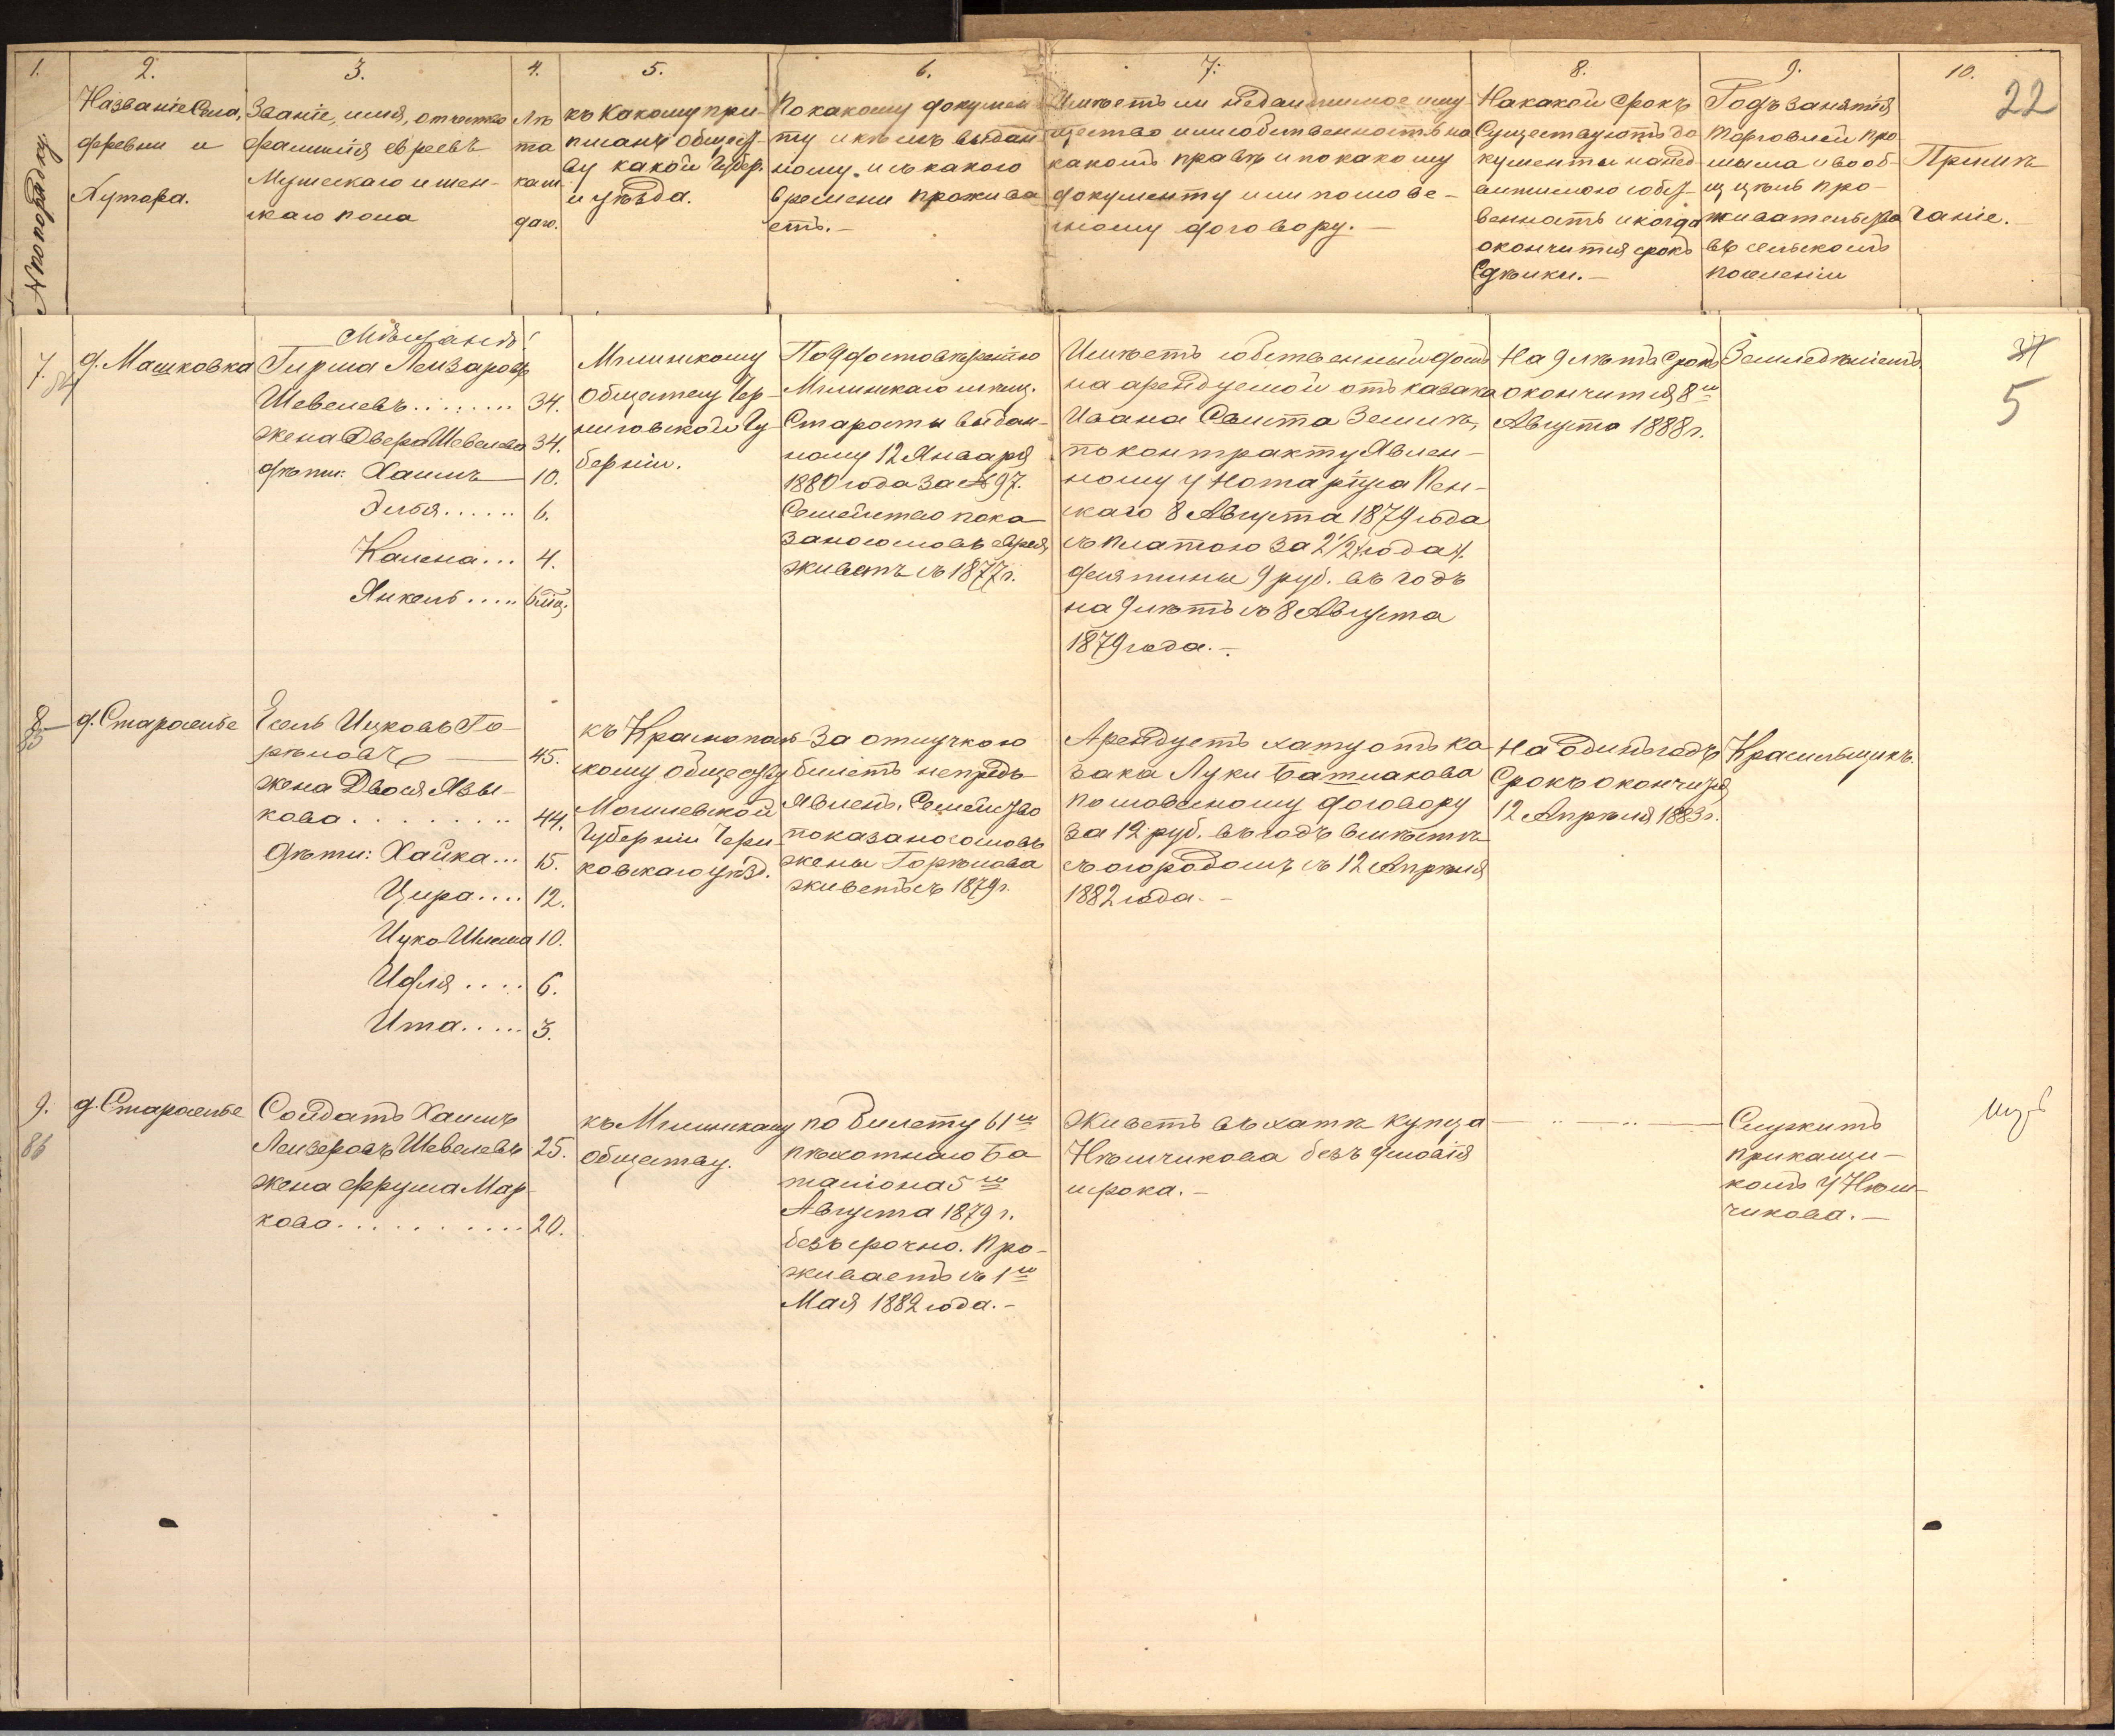 1.
№ по порядку
2.
Названіе Села,
деревни и
Хутора.
3.
Званіе, имя, отчество
фамилія евреевъ
Мужескаго и жен-
скаго пола
4.
Лѣ
та
каж
даго.
5.
къ Какому при-
писанъ Общест-
ву какой Губер.
и уѣзда.
6.
По какому докумен
ту и кѣмъ выдан
ному. и съ какого
времени прожива
етъ.—
7.
Имѣетъ ли недвижимое иму
щество или собственность на
какомъ правѣ и по какому
документу или послове-
сному договору.—
8.
На какой срокъ
Существуютъ до
кументы на нед
вижимою собст-
венность и когда
окончится срокъ
Сдѣлки.—
9.
Годъ занятія
торговлей про
мысла и вооб-
щ цѣль про-
живательства
въ сельскомъ
поселеніи
10.
Примѣ
чаніе.
22
7.
84
д. Машковка
Мѣщанъ:
Гирша Лейзаровъ
Шевелевъ........ 34.
жена Двера Шевелева 34.
дѣти: Хаимъ — 10.
Эльья...... 6.
Калена... 4.
Янкель..... 6 мѣц.
Мглинскому
Обществу Чер-
ниговской Гу
берніи.
По Удостовѣренію
Мглинскаго мѣщ.
Старосты выдан-
ному 12 Января
1880 года за №97.
Семейство пока-
зано со словъ еврея,
живетъ съ 1877 г.
Имѣетъ собственный домъ
на арендуемой отъ казака
Ивана Свиста Землѣ,
по контракту Явлен-
ному у Нотаріуса Пен-
скаго 8 Августа 1879 года
съ платою за 2 1/2 года
десятины 9 руб. въ годъ
на 9 лѣтъ съ 8 Августа
1879 года.—
На 9 лѣтъ срокъ
окончится 8го
Августа 1888 г.
Земледѣліемъ.
37
5
8
85
д. Староселье
Есель Ицковъ Го-
рѣловъ — 45.
жена Двося Язы-
кова......... 44.
Дѣти: Хайка... 15.
Цира.... 12.
Ицко Шлема 10.
Идля.... 6.
Ита..... 3.
къ Краснополь-
скому обществу
Могилевской
Губерніи Чери-
ковскаго уѣзд.
За отлучкою
билетъ непредъ
явленъ. Семейство
показано со словъ
жены Горѣлова
живетъ съ 1879 г.
Арендуетъ хату отъ ка
зака Луки Батмакова
по словесному договору
за 12 руб. въ годъ вмѣстѣ
съ огородомъ съ 12 Апрѣля
1882 года.—
На одинъ годъ
Срокъ окончится
12 Апрѣля 1883 г.
Красильщикъ.
9.
86
д. Староселье
Солдатъ Хаимъ
Лейзеровъ Шевелевъ 25.
жена Фрума Мар-
кова.......... 20.
къ Мглинскому
обществу.
по билету 61го
пѣхотнаго Ба
таліона 5го
Августа 1879 г.
безъ срочно. Про-
живаетъ съ 1го
Мая 1882 года.—
Живетъ въ хатѣ купца
Нѣмчикова безъ условія
и срока.—
Служитъ
прикащи-
комъ у Нѣм-
чикова.—